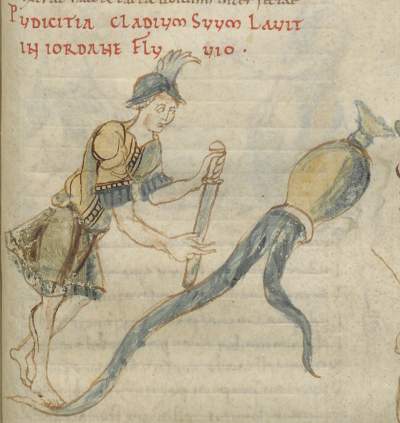 PVDICITIA CLADIVM SVVM LAVIT
IN IORDANE FLV VIO ·